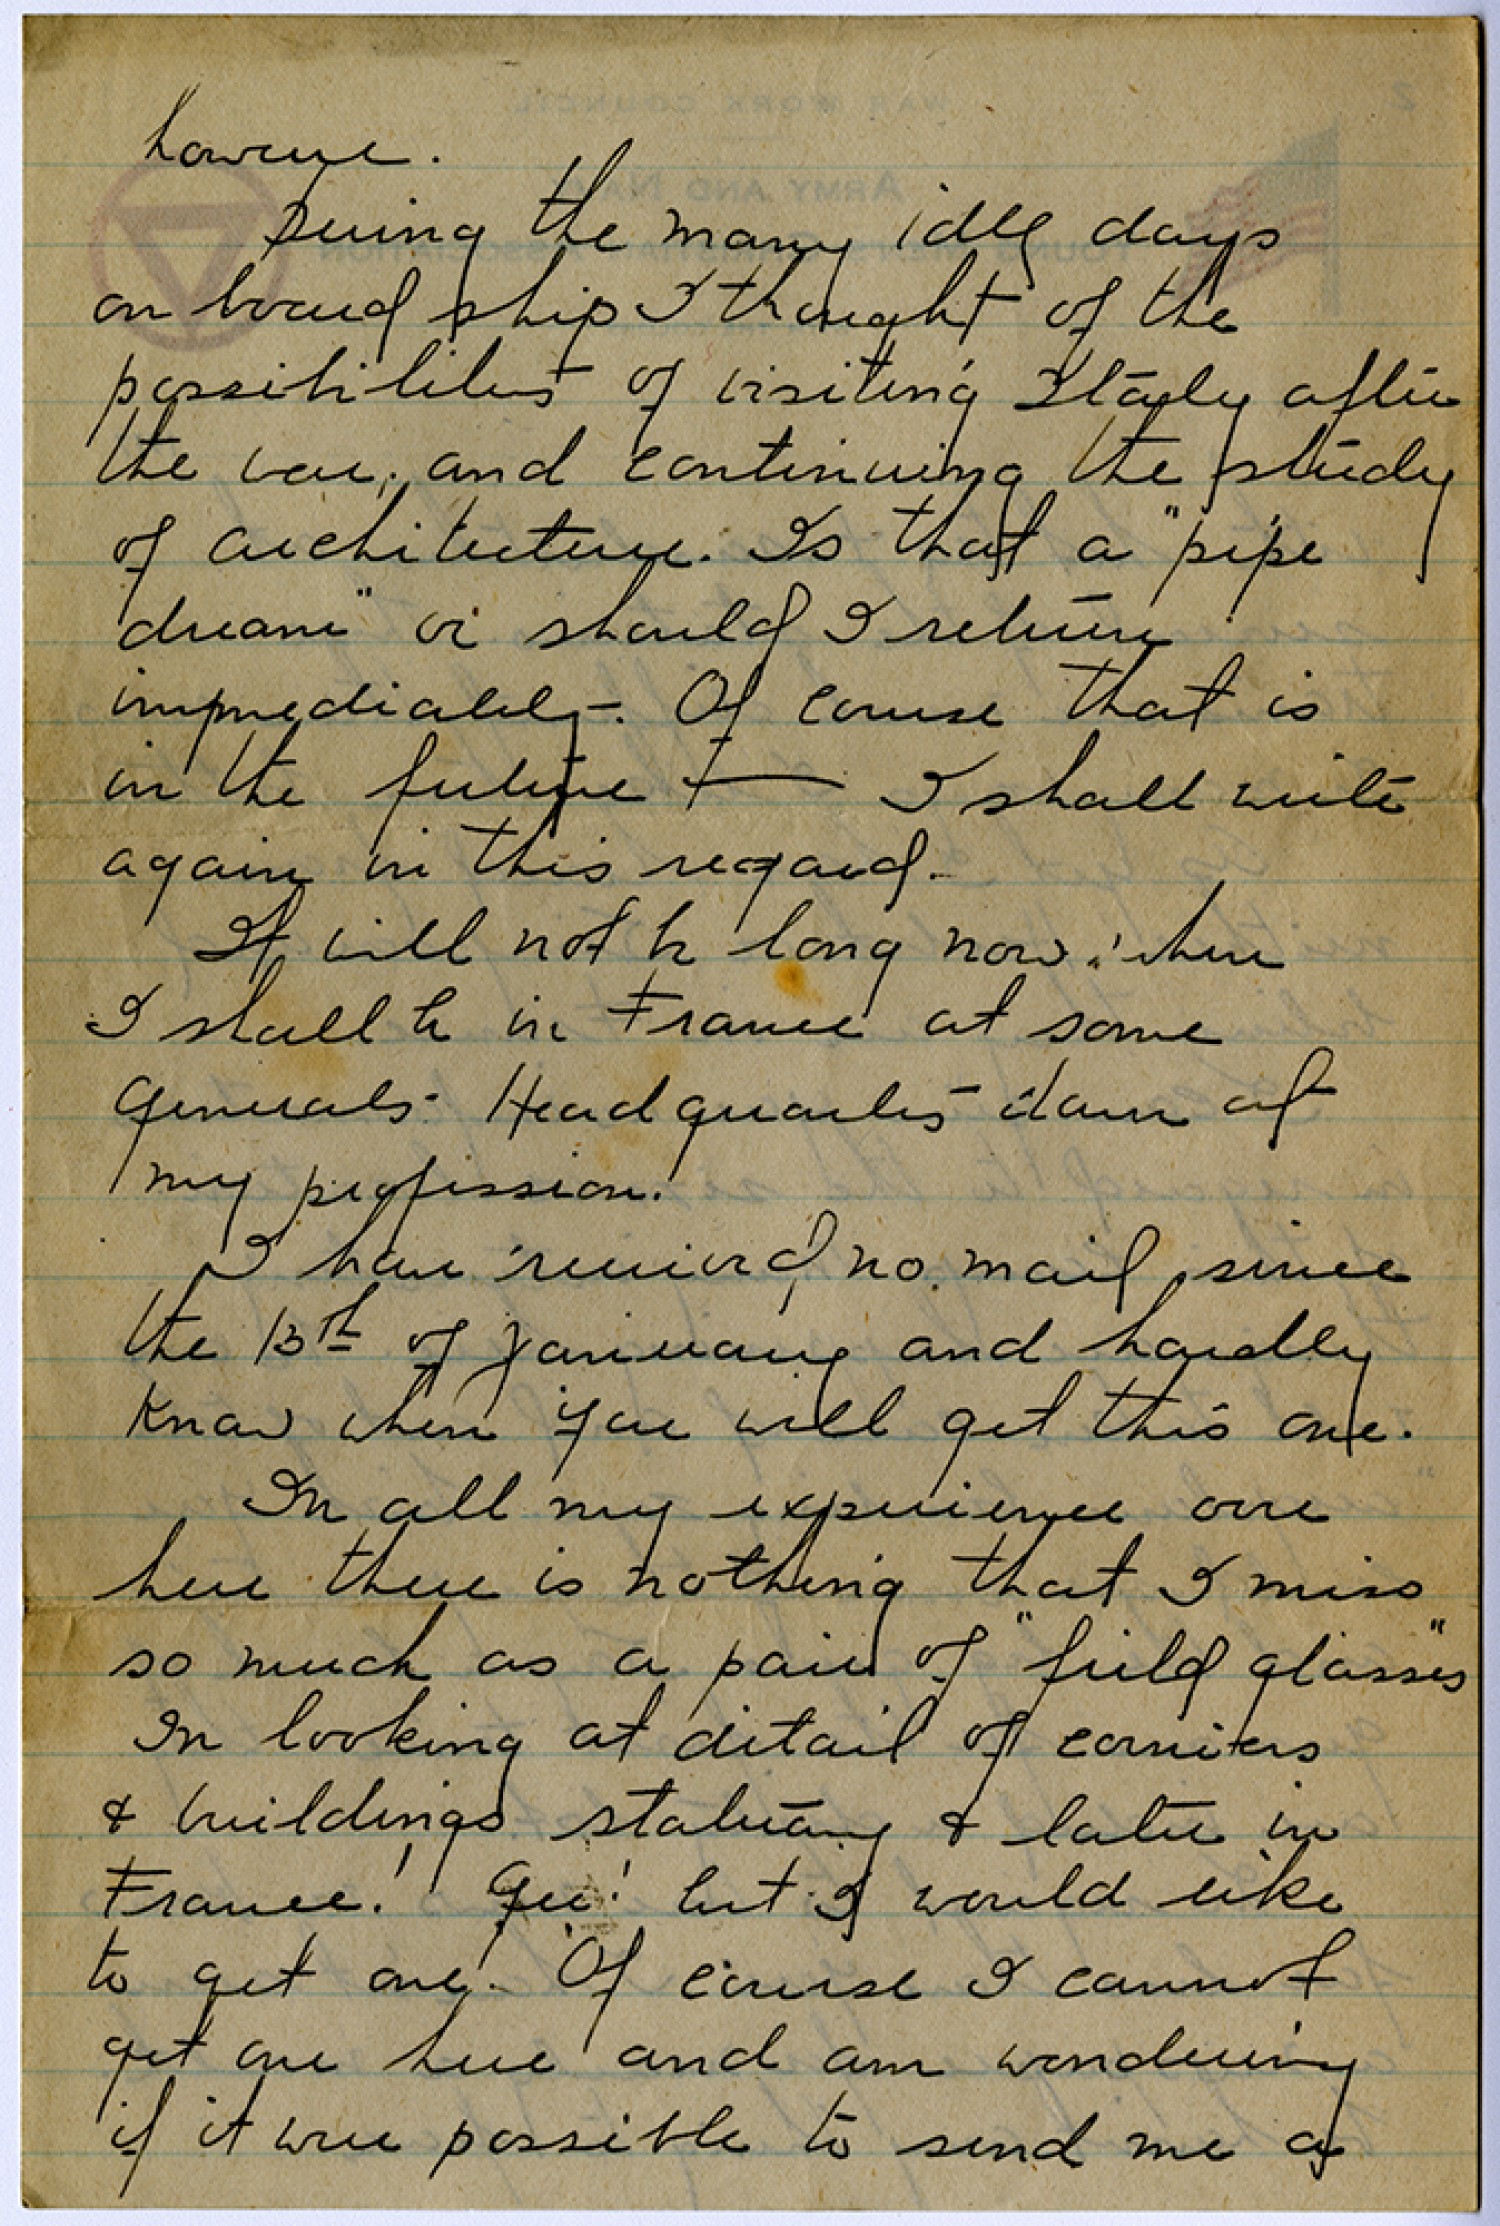 however.
During the many idle days
on board ship I thought of the
possibilities of visiting Italy after
the war, and continuing the study
of architecture. Is that a "pipe
dream" or should I return
immediately. Of course that is
in the future — I shall write
again in this regard.
It will not be long now when
I shall be in France at some
Generals Headquarters at
my profession.
I have received no mail since
the 13th of January and hardly
know when you will get this one.
In all my experience over
here there is nothing that I miss
so much as a pair of "field glasses"
In looking at detail of cornices
& buildings statuary & later in
France! Gee! but I would like
to get one. Of course I cannot
get one here and am wondering
if it were possible to send me a
WAR WORK COUNCIL
ARMY AND NAVY
YOUNG MEN'S CHRISTIAN ASSOCIATION